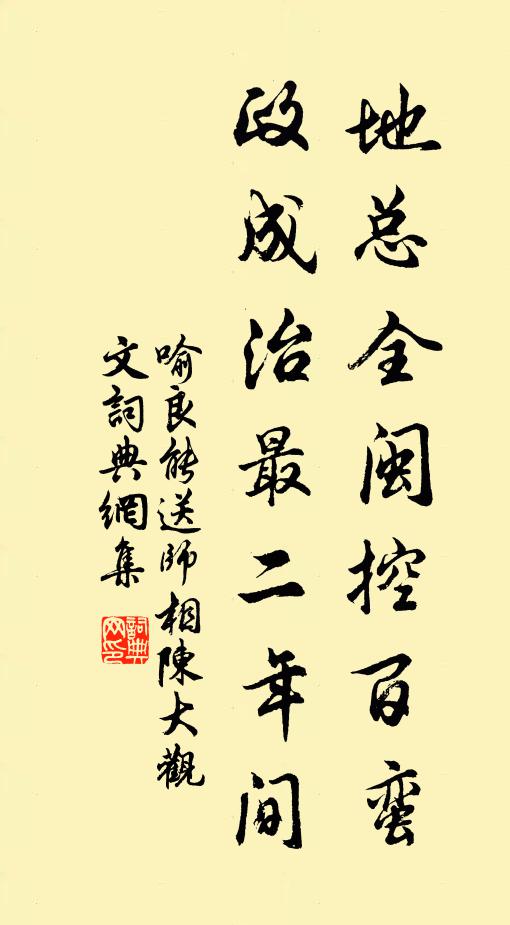 地总全闽控百蛮
政成治最二年间
喻良能送师相陳大觀
文詞典網集
詞典网印